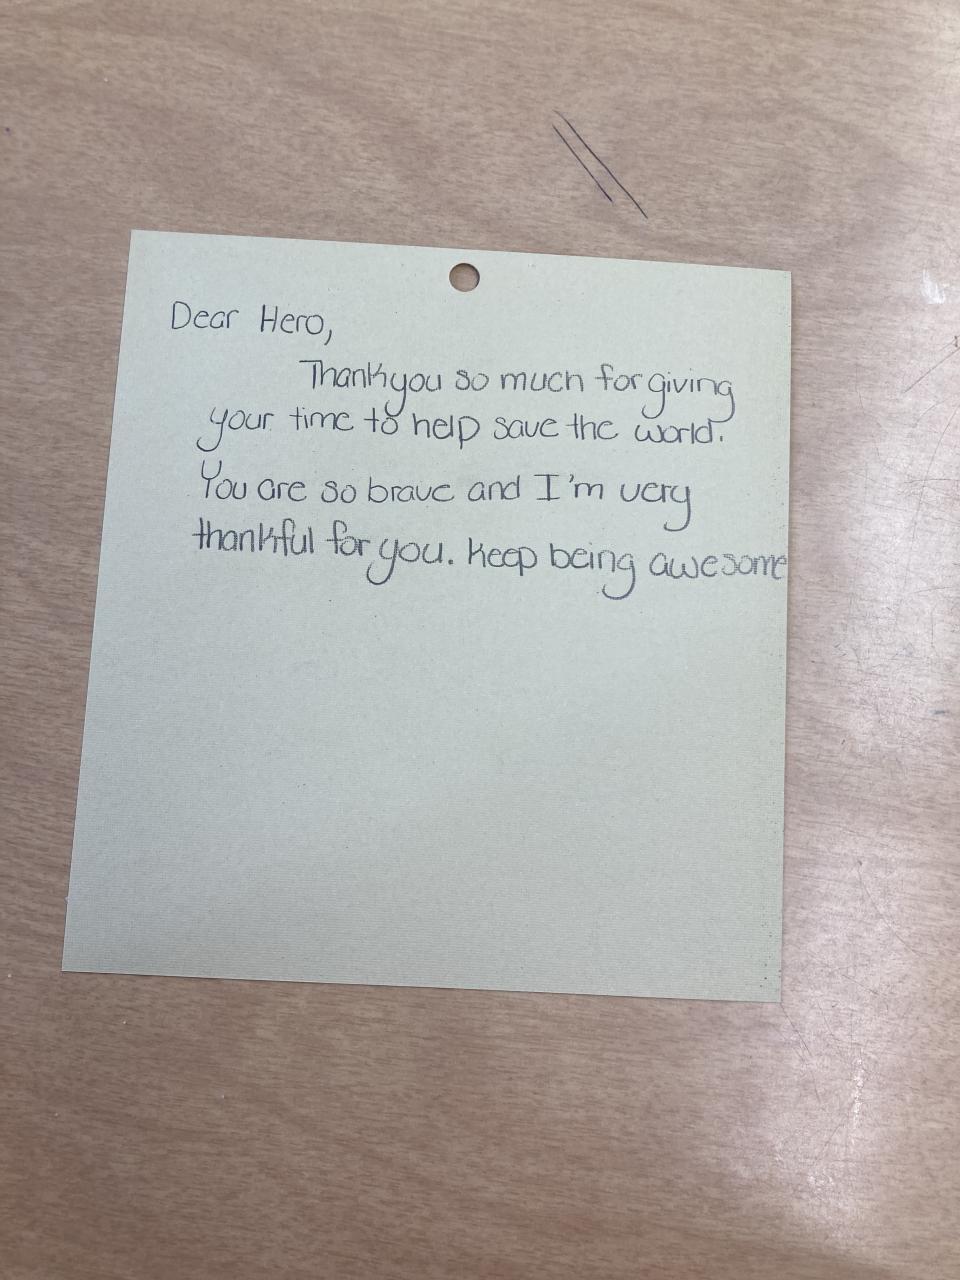 Dear Hero,
Thank you so much for giving
your time to help save the world.
You are so brave and I'm very
thankful for you. Keep being awesome